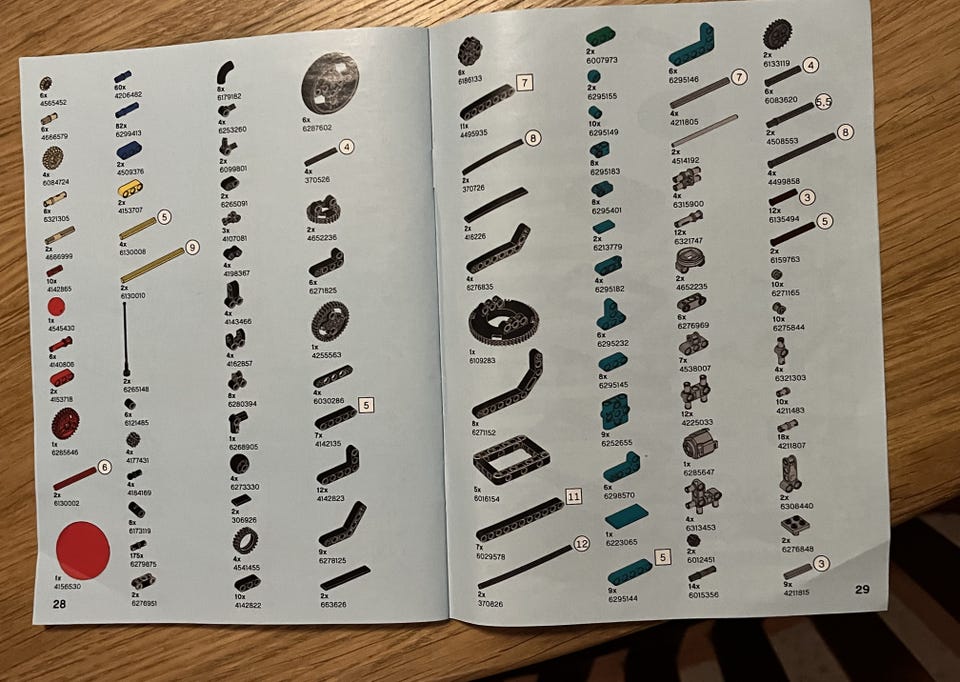 6x
4565452
6x
4666579
4x
6084724
6x
6321305
2x
4666999
10x
4142865
1x
4545430
6x
4140806
2x
4153718
1x
6285646
6
2x
6130002
1x
4156530
28
60x
4206482
82x
6299413
2x
4509376
2x
4153707
5
4x
6130008
9
2x
6130010
2x
6265148
6x
6121485
4x
4177431
4x
4184169
8x
6173119
175x
6279875
2x
6276951
8x
6179182
4x
6253260
2x
6099801
2x
6265091
3x
4107081
4x
4198367
4x
4143466
4x
4162857
8x
6280394
1x
6268905
4x
6273330
2x
306926
4x
4541455
10x
4142822
6x
6287602
4
4x
370526
2x
4652236
6x
6271825
1x
4255563
4x
6030286
5
7x
4142135
12x
4142823
9x
6278125
2x
663626
6x
6186133
7
11x
4495935
8
2x
370726
2x
416226
4x
6276835
1x
6109283
8x
6271152
5x
6016154
11
7x
6029578
12
2x
370826
2x
6007973
2x
6295155
10x
6295149
8x
6295183
8x
6295401
2x
6213779
4x
6295182
6x
6295232
8x
6295145
9x
6252655
6x
6298570
1x
6223065
5
9x
6295144
6x
6295146
7
4x
4211805
2x
4514192
4x
6315900
12x
6321747
2x
4652235
6x
6276969
7x
4538007
12x
4225033
1x
6285647
4x
6313453
2x
6012451
14x
6015356
2x
6133119
4
6x
6083620
5.5
2x
4508553
8
4x
4499858
3
12x
6135494
5
2x
6159763
10x
6271165
10x
6275844
4x
6321303
10x
4211483
18x
4211807
2x
6308440
2x
6276848
3
9x
4211815
29